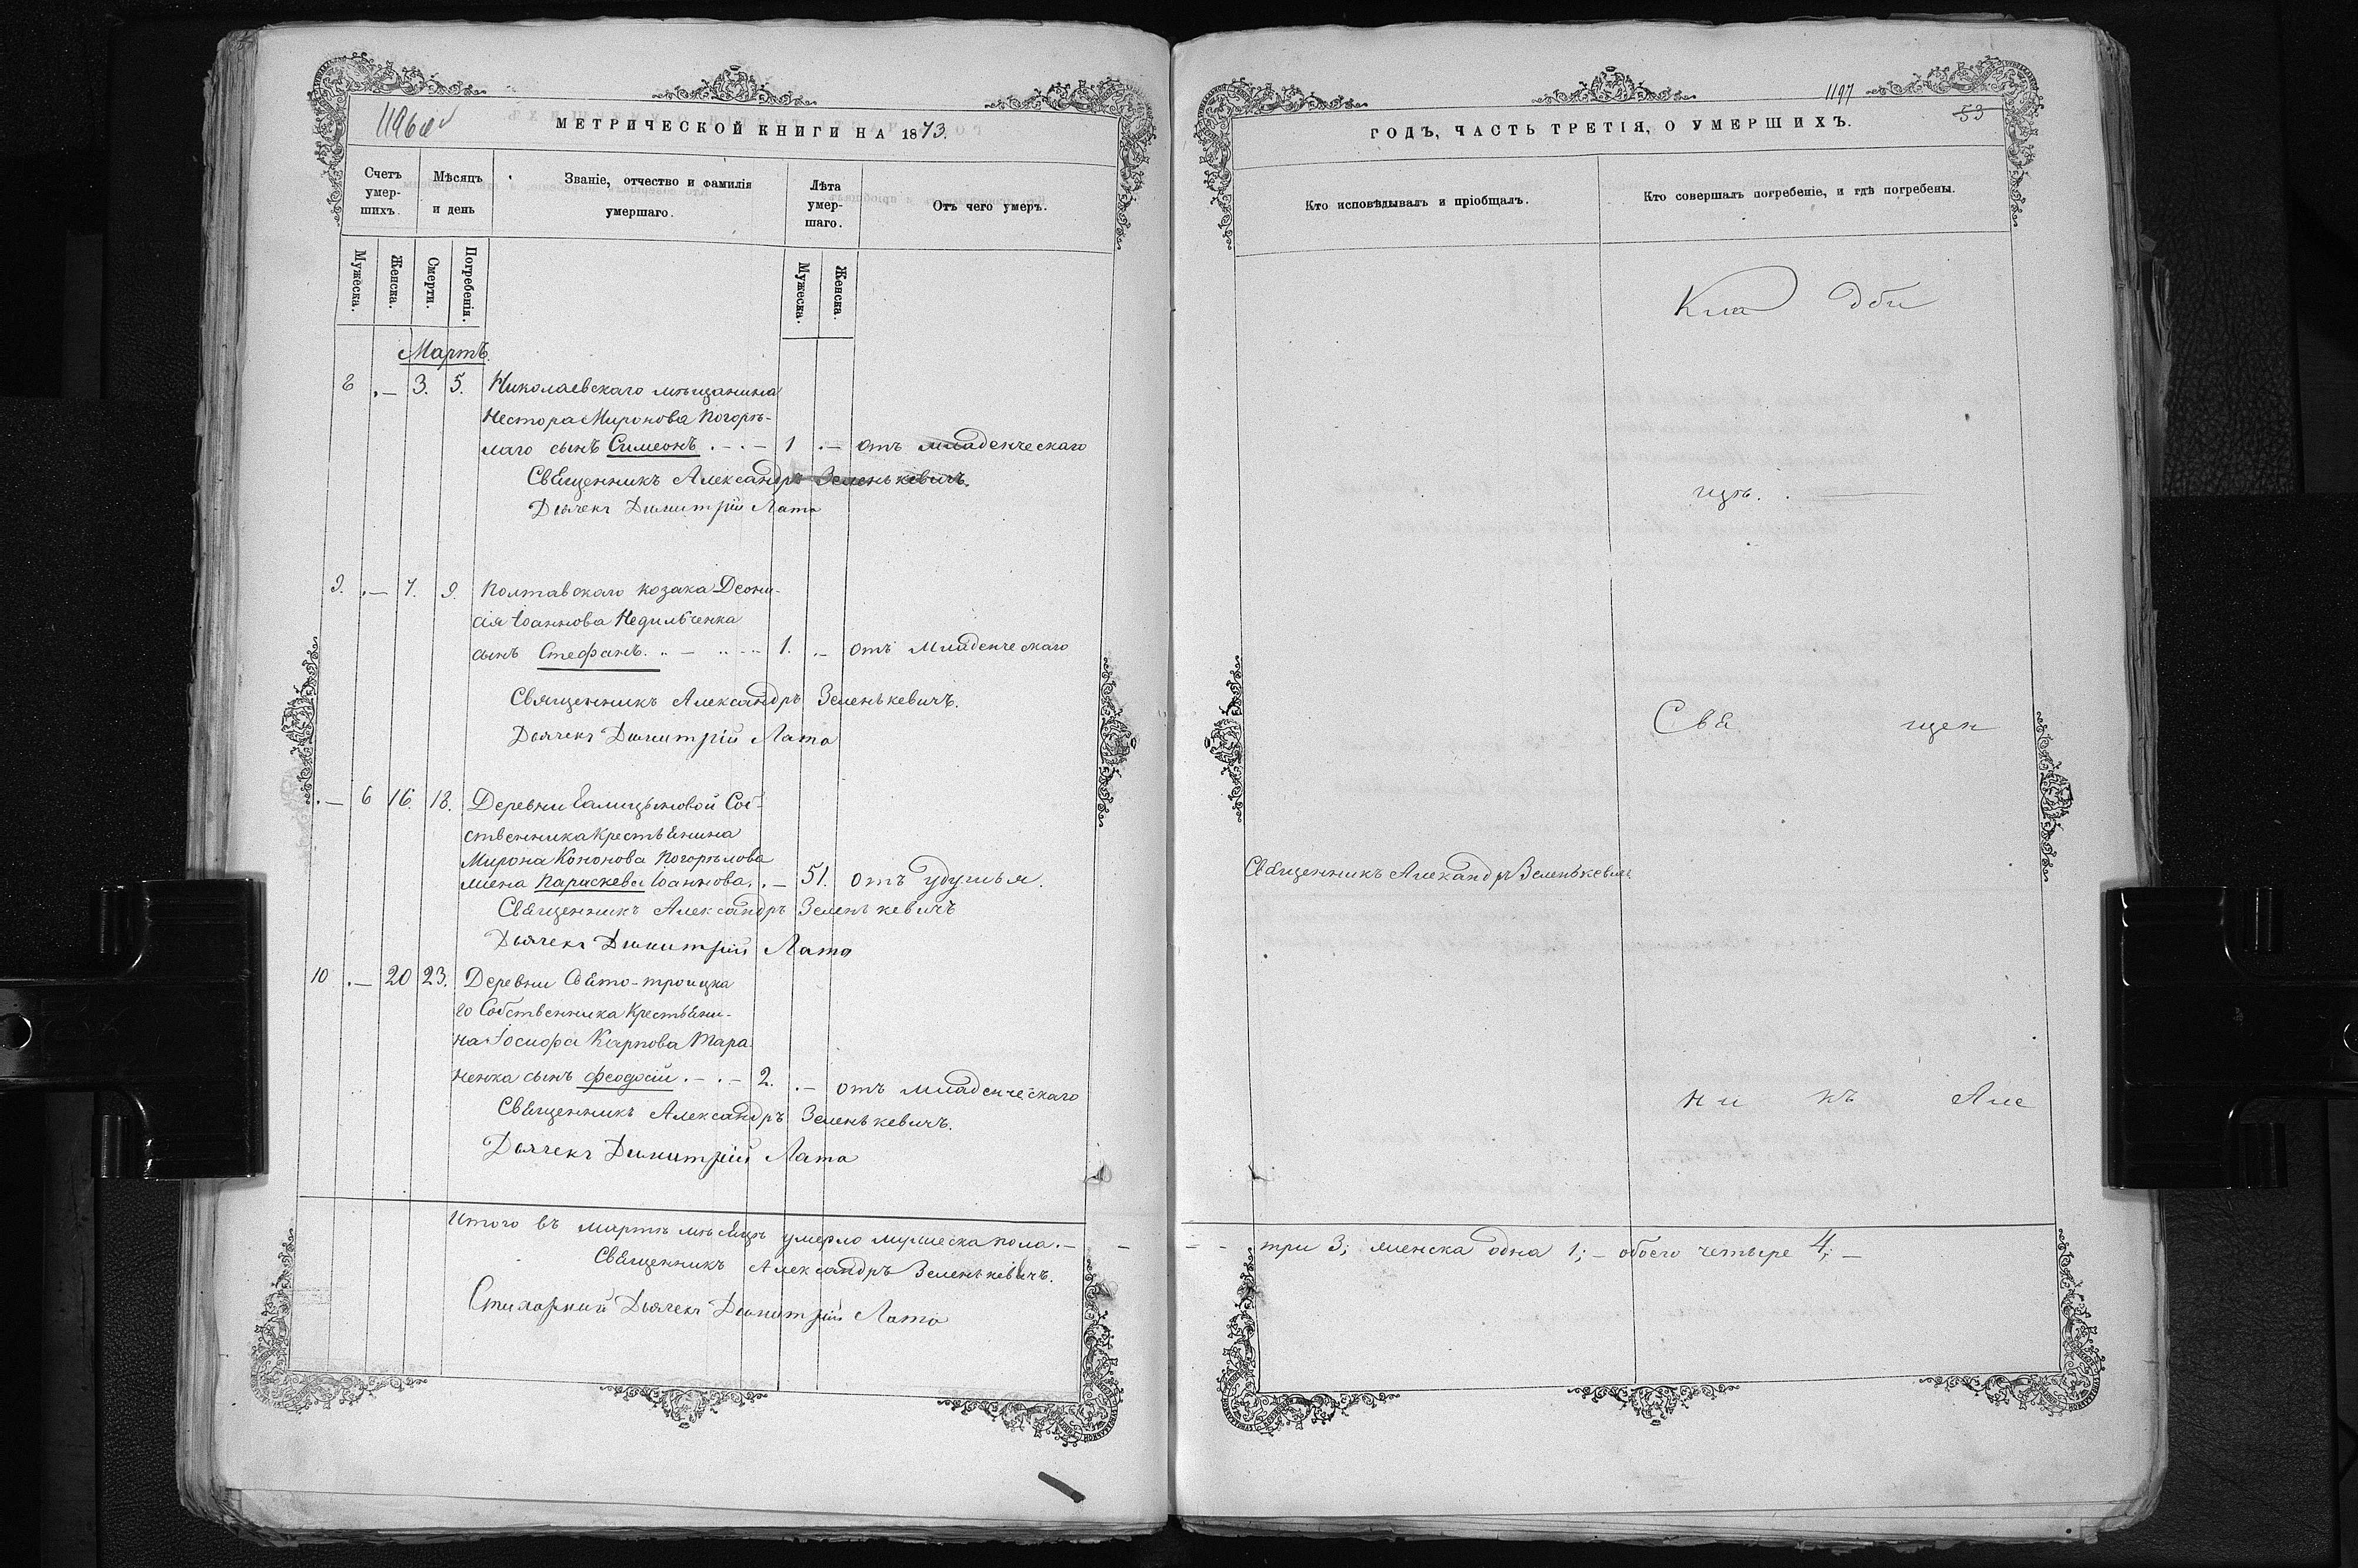 МЕТРИЧЕСКОЙ КНИГИ НА 1873.
Счетъ умер- шихъ.
Мѣсяцъ и день
Званіе, отчество и фамилія умершаго.
Лѣта умер- шаго.
Отъ чего умеръ.
Мужеска.
Женска.
Смерти.
Погребенія.
Мужеска.
Женска.
Мартъ.
3. 5. Николаевскаго мѣщанина
Нестора Миронова Погорѣ-
лаго сынъ Симеонъ . - . - 1 . - отъ младенческаго
Священникъ Александръ Зеленькевичъ.
Дьячекъ Димитрій Лата
9. . - 7. 9. Полтавскаго козака Деони-
сія Іоаннова Недильченка
сынъ Стефанъ. 1. . - отъ младенческаго
Священникъ Александръ Зеленькевичъ.
Дьячекъ Димитрій Лата
. - 6 16. 18. Деревни Галицыновой Соб-
ственника крестьянина
Мирона Кононова Погорѣлова
жена Параскева Іоаннова. . - 51. отъ удушья.
Священникъ Александръ Зеленькевичъ
Дьячекъ Димитрій Лата
10 . - 20 23. Деревни Свято-троицка
го Собственника Крестьяни-
на Іосифа Карпова Тара
ненка сынъ Феодосій . - . - 2. . - отъ младенческаго
Священникъ Александръ Зеленькевичъ.
Дьячекъ Димитрій Лата
Итого въ мартѣ мѣсяцѣ умерло мужеска пола. -
Священникъ Александръ Зеленькевичъ.
Стихарный Дьячекъ Димитрій Лата
1197
53
ГОДЪ, ЧАСТЬ ТРЕТІЯ, О УМЕРШИХЪ.
Кто исповѣдывалъ и пріобщалъ.
Кто совершалъ погребеніе, и гдѣ погребены.
Кла дби
щѣ.
Свя щен
Священникъ Александръ Зеленькевичъ
ни къ Але
три 3; женска одна 1; - обоего четыре 4; -